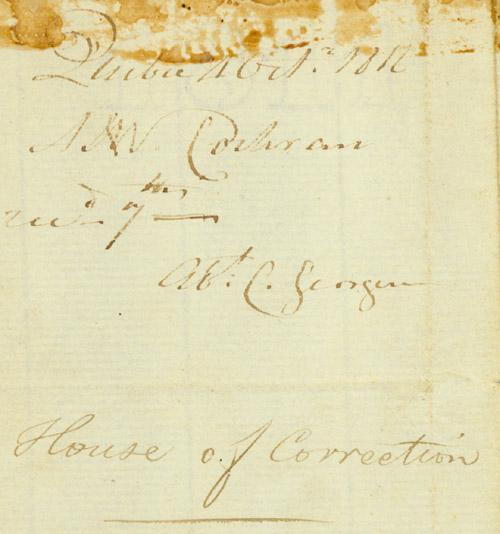 Quebec 4 Octr. 1812
A W Cochran
recd. 7th
Abt. C. Georgen
House of Correction